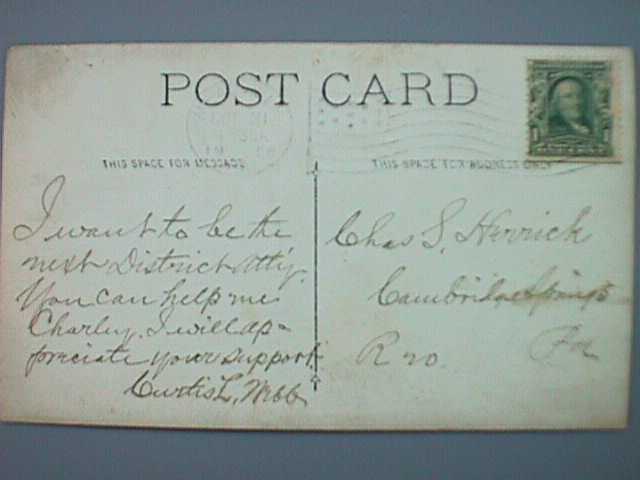 POST CARD
THIS SPACE FOR MESSAGE
THIS SPACE FOR ADDRESS ONLY
I want to be the
next District Att'y.
You can help me
Charley. I will ap-
preciate your support
Curtis L. Webb
Chas S. Herrick
Cambridge Springs
R 20. Pa
1